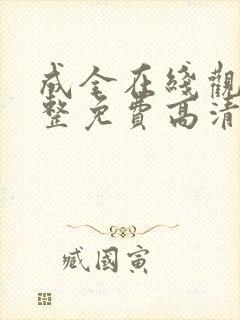 成全在綫觀
整免費高清
臧國寅